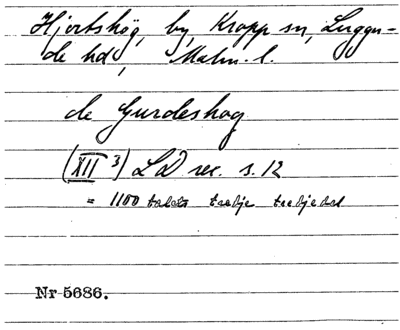 Hjortshög, by, Kropp sn, Luggu-
de hd, Malm. l.
de Gurdeshog
(XII 3) LD rec. s. 12
= 1100 talets tredje tredjedel
Nr 5686.